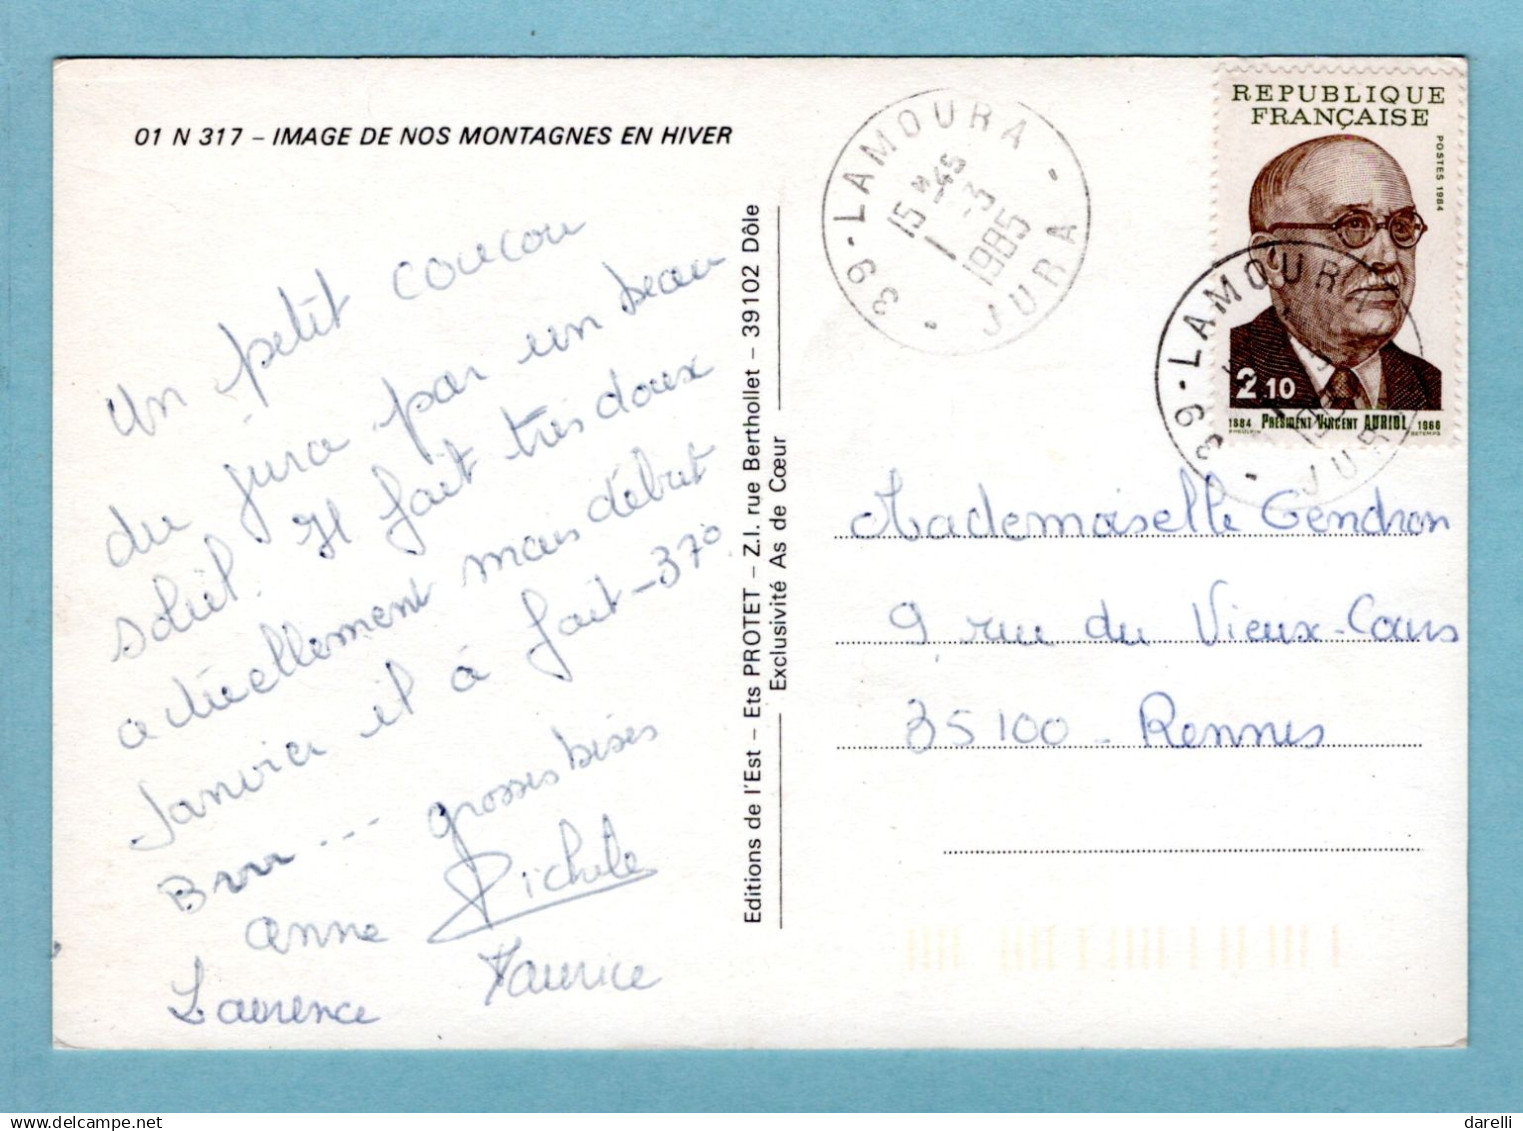 01 N 317 – IMAGE DE NOS MONTAGNES EN HIVER
Un petit coucou
du jura par un beau
soleil. Il fait très doux
actuellement mais début
Janvier il à fait -37°
Brrr --- grosses bises
Anne Michele
Laurence Maurice
Editions de l'Est – Ets PROTET – Z.I. rue Berthollet – 39102 Dôle
Exclusivité As de Cœur
39 - LAMOURA - JURA -
15 H 45
1 - 3
1985
REPUBLIQUE
FRANÇAISE
POSTES 1984
2,10
1884 PRÉSIDENT VINCENT AURIOL 1966
39 - LAMOURA
JURA -
Mademoiselle Gendron
9 rue du Vieux-Cours
35100 - Rennes
darelli